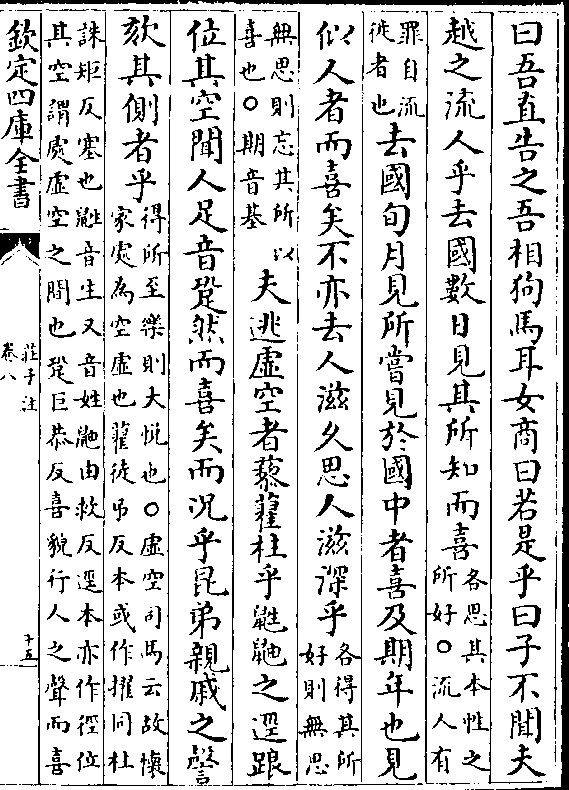 曰吾直告之吾相狗馬耳女商曰若是乎曰子不聞夫
越之流人乎去國數日見其所知而喜
各思其本性之
所好○流人有
罪自流
徙者也
去國旬月見所嘗見於國中者喜及期年也見
似人者而喜矣不亦去人滋久思人滋深乎
各得其所
好則無思
無思則忘其所以
喜也○期音基
夫逃虛空者藜藋杜乎鼪鼬之逕踉
位其空聞人足音跫然而喜矣而況乎昆弟親戚之謦
欬其側者乎
得所至樂則大悅也○虛空司馬云故壞
冢處為空虛也藋徒吊反本或作擢同杜
誅矩反塞也鼪音生又音姓鼬由救反逕本亦作徑位
其空謂處虛空之間也跫巨恭反喜貌行人之聲而喜
欽定四庫全書
莊子注
卷八
十五